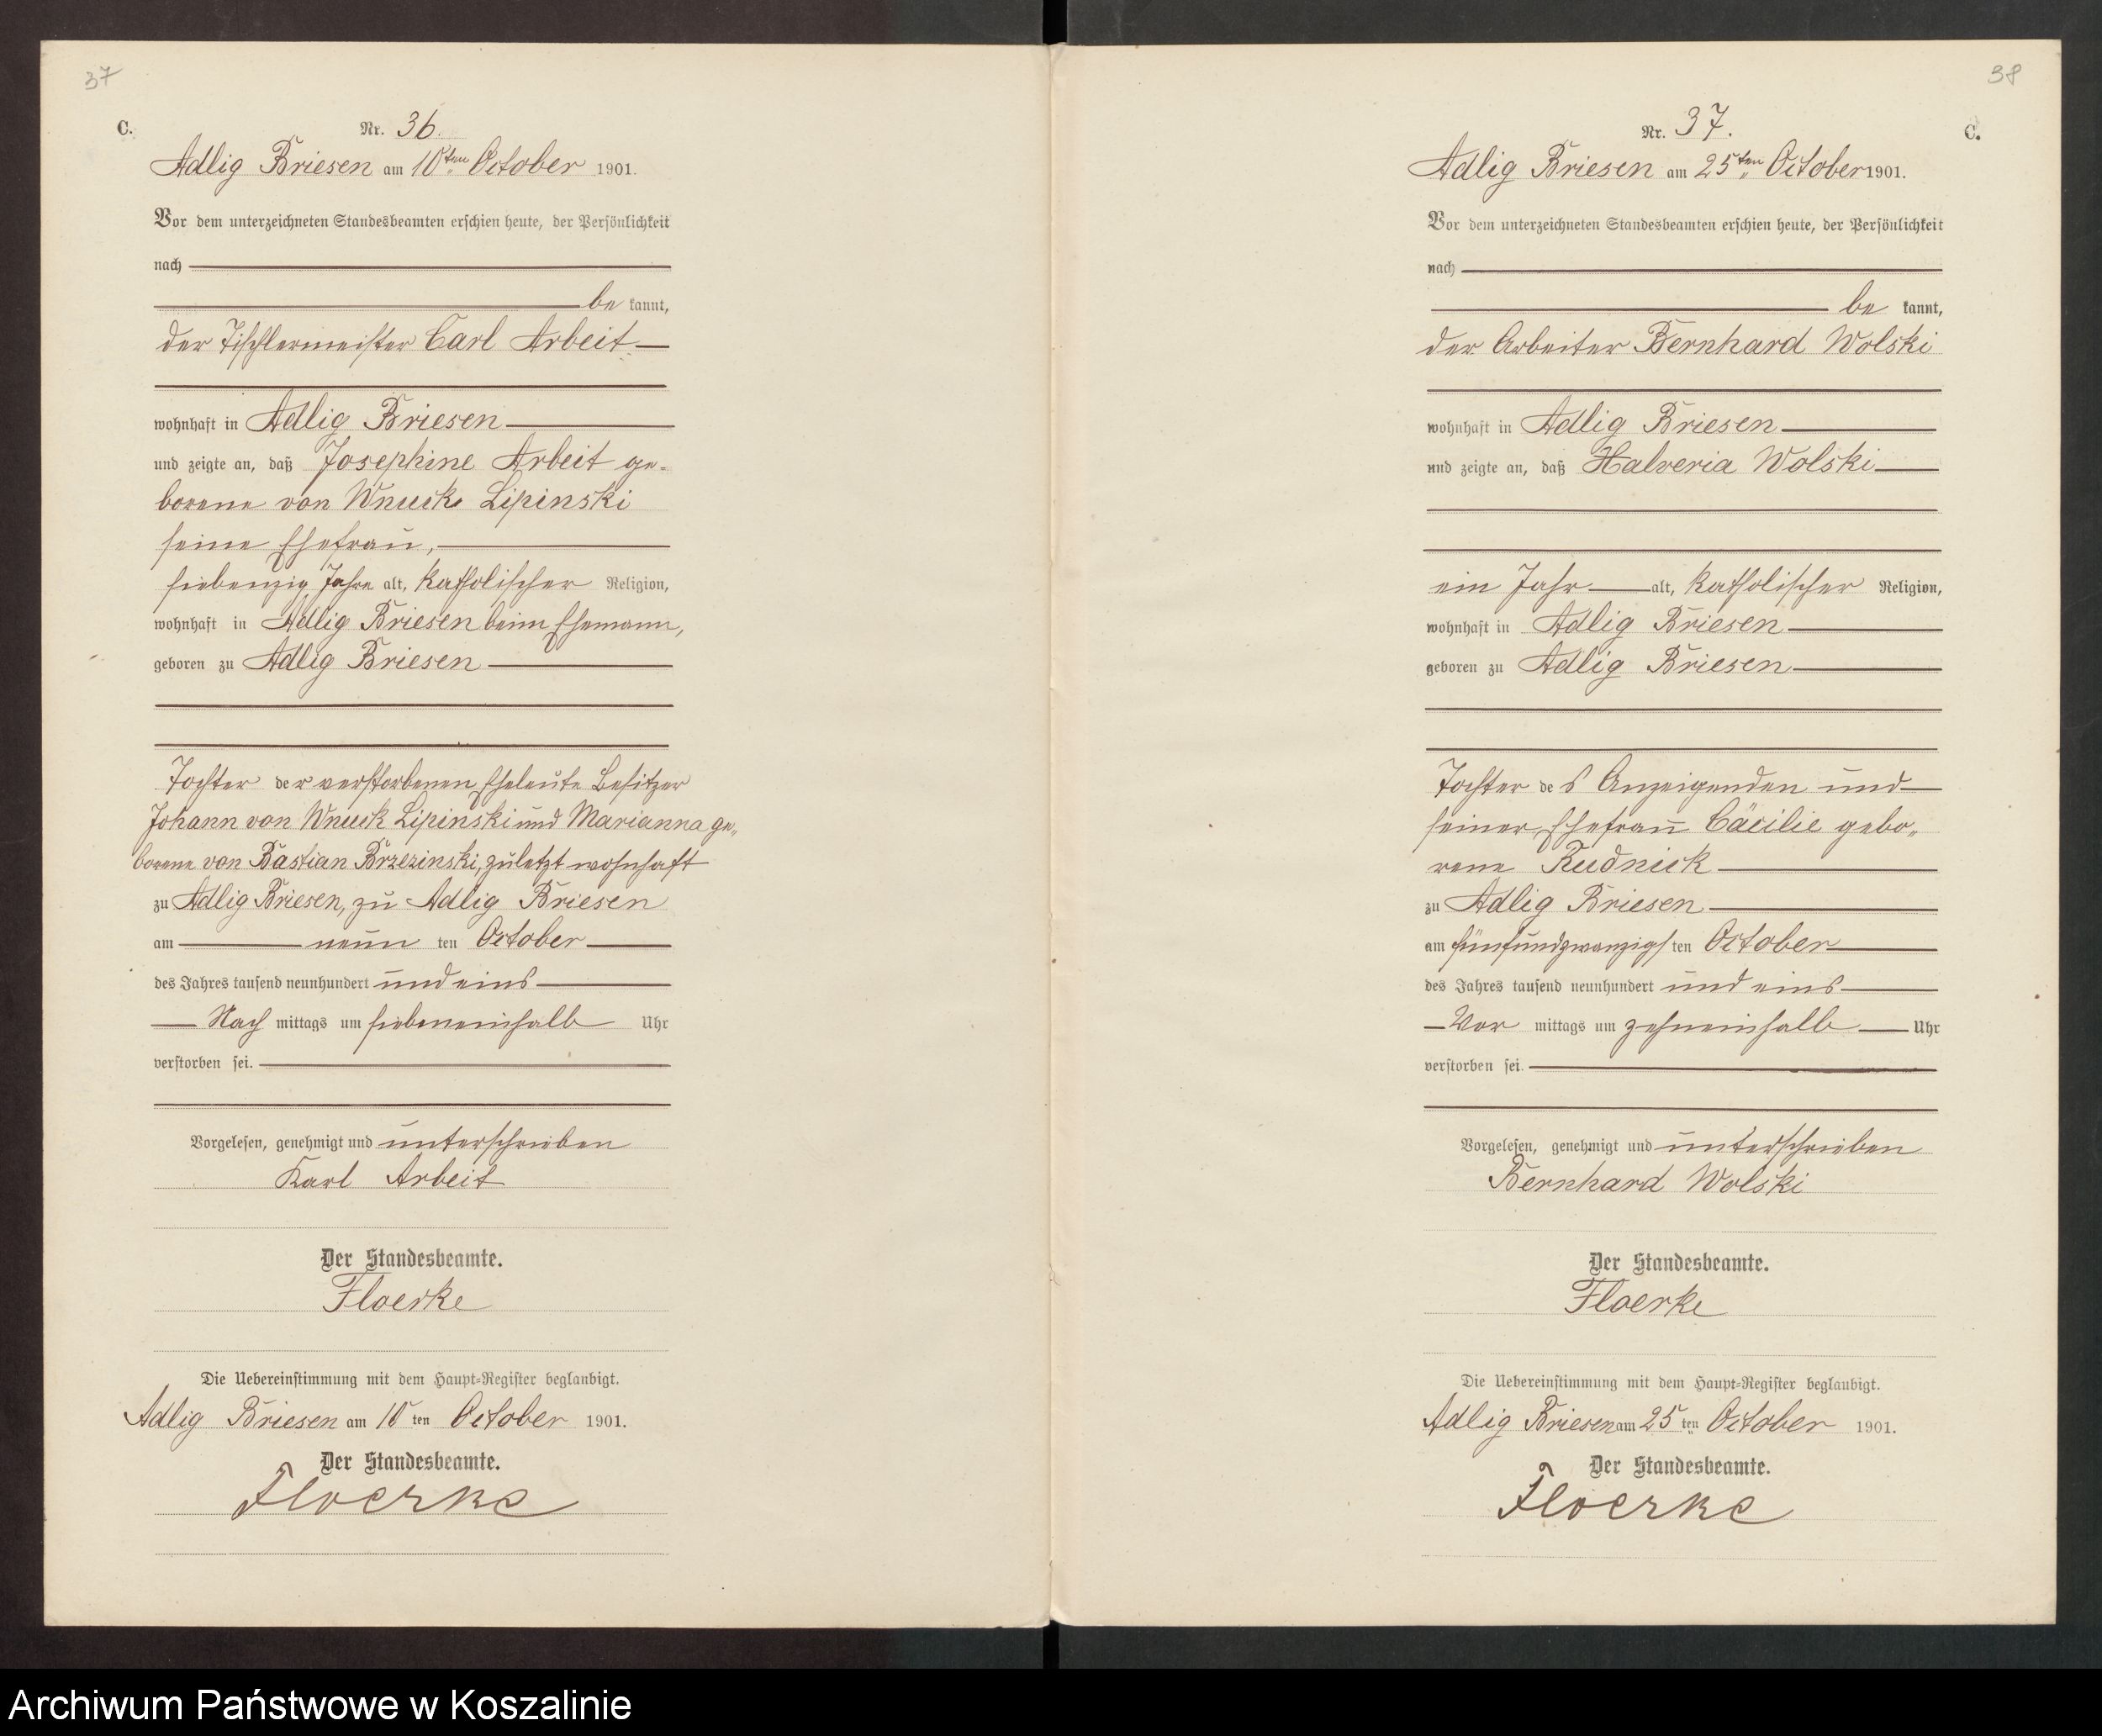 37
C.
Nr. 36.
Adlig Briesen am 10ten October 1901.
Vor dem unterzeichneten Standesbeamten erschien heute, der Persönlichkeit
nach
be kannt,
der Tischlermeister Carl Arbeit
wohnhaft in Adlig Briesen
und zeigte an, daß Josephine Arbeit ge-
borene von Wnuck Lipinski
seine Ehefrau,
siebenzig Jahre alt, katholischer Religion,
wohnhaft in Adlig Briesen beim Ehemann,
geboren zu Adlig Briesen
Tochter der verstorbenen Eheleute Besitzer
Johann von Wnuck Lipinski und Marianna ge„
borene von Bastian Brzezinski, zuletzt wohnhaft
zu Adlig Briesen, zu Adlig Briesen
am neun ten October
des Jahres tausend neunhundert und eins
Nach mittags um siebeneinhalb Uhr
verstorben sei.
Vorgelesen, genehmigt und unterschrieben
Karl Arbeit
Der Standesbeamte.
Floerke
Die Uebereinstimmung mit dem Haupt-Register beglaubigt.
Adlig Briesen am 10 ten October 1901.
Der Standesbeamte.
Floerke
38
Nr. 37.
C.
Adlig Briesen am 25ten October 1901.
Vor dem unterzeichneten Standesbeamten erschien heute, der Persönlichkeit
nach
be kannt,
der Arbeiter Bernhard Wolski
wohnhaft in Adlig Briesen
und zeigte an, daß Halveria Wolski
ein Jahr alt, katholischer Religion,
wohnhaft in Adlig Briesen
geboren zu Adlig Briesen
Tochter des Anzeigenden und
seiner Ehefrau Cäcilie gebo„
rene Rudnick
zu Adlig Briesen
am fünfundzwanzigsten October
des Jahres tausend neunhundert und eins
Vor mittags um zehneinhalb Uhr
verstorben sei.
Vorgelesen, genehmigt und unterschrieben
Bernhard Wolski
Der Standesbeamte.
Floerke
Die Uebereinstimmung mit dem Haupt-Register beglaubigt.
Adlig Briesen am 25 ten October 1901.
Der Standesbeamte.
Floerke
Archiwum Państwowe w Koszalinie